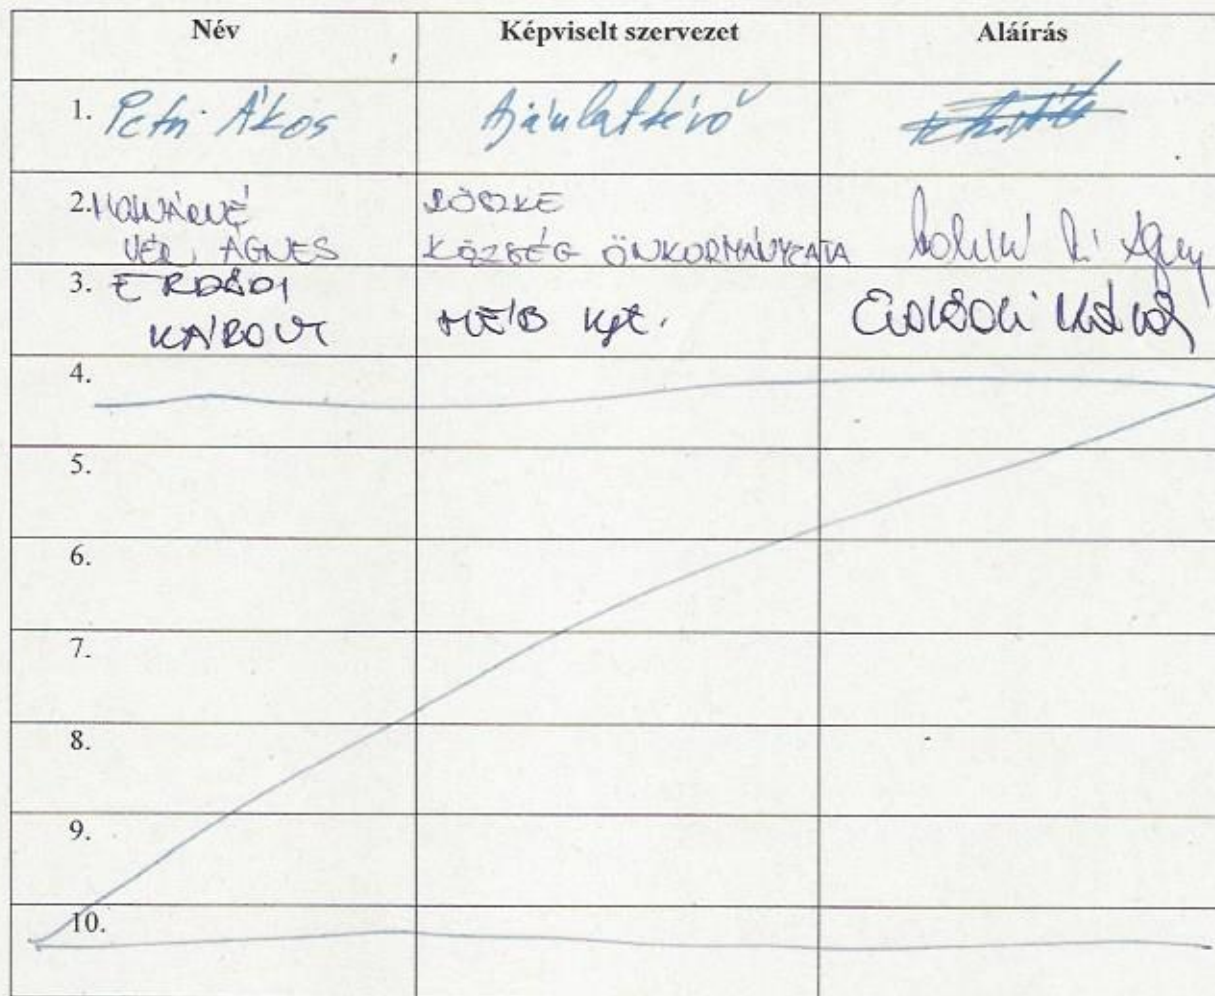 Név Képviselt szervezet Aláírás
1. Petri Ákos Ajánlatkérő
2. MOLNÁRNÉ RÖSZKE
VÉR ÁGNES KÖZSÉG ÖNKORMÁNYZATA
3. ERDŐDI
KÁROLY MÉB Kft. Erdődi Károly
4.
5.
6.
7.
8.
9.
10.